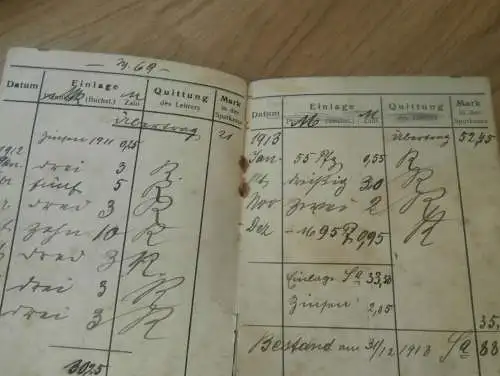 M. 69.
Datum Einlage Quittung Mark
M (Buchst.) M Zahl des Lehrers in der Sparkasse
Übertrag 21
Zinsen 1911 0,25
1912
drei 3 R.
fünf 5 R
drei 3 R
zehn 10 R
drei 3 R.
drei 3 R
drei 3 R
30,25
Datum Einlage Quittung Mark
M M Zahl des Lehrers in der Sparkasse
1913 Übertrag 52,45
Jan 55 Pfg 0,55 R
dreißig 30 R
Nov zwei 2 R
Dez 95 0,95 R
Einlage Sa 33,50
Zinsen
35,
Bestand am 31/12 1913 Sa 88